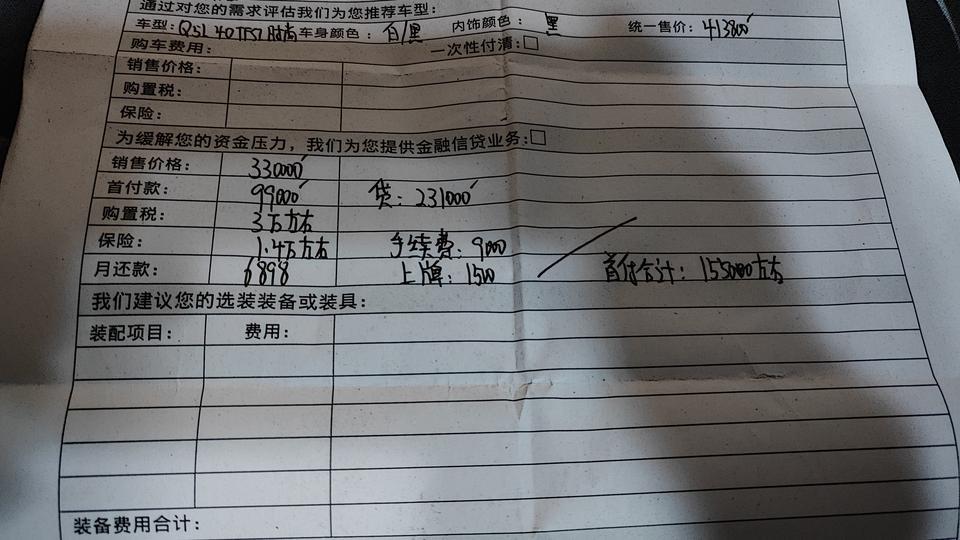 通过对您的需求评估我们为您推荐车型：
车型：Q5L 40TFSI 时尚 车身颜色：白/黑 内饰颜色：黑 统一售价：413800
购车费用： 一次性付清：□
销售价格：
购置税：
保险：
为缓解您的资金压力，我们为您提供金融信贷业务：□
销售价格： 330000
首付款： 99000 贷：231000
购置税： 3万左右
保险： 1.4万左右 手续费：9000
月还款： 6898 上牌：1500 首付合计：155000左右
我们建议您的选装装备或装具：
装配项目： 费用：
装备费用合计：